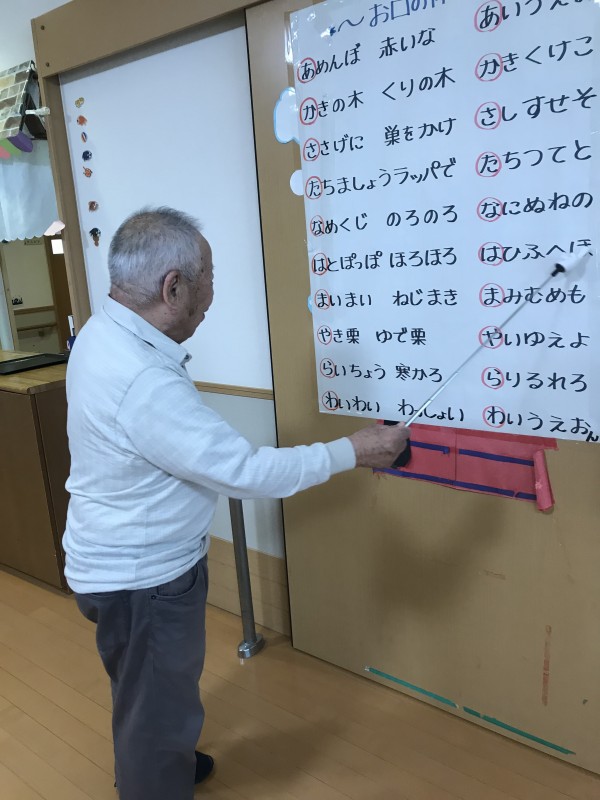 ～お口の
あめんぼ 赤いな あいうえお
かきの木 くりの木 かきくけこ
ささげに 巣をかけ さしすせそ
たちましょうラッパで たちつてと
なめくじ のろのろ なにぬねの
はとぽっぽ ほろほろ はひふへほ
まいまい ねじまき まみむめも
やき栗 ゆで栗 やいゆえよ
らいちょう 寒かろ らりるれろ
わいわい わっしょい わいうえおん